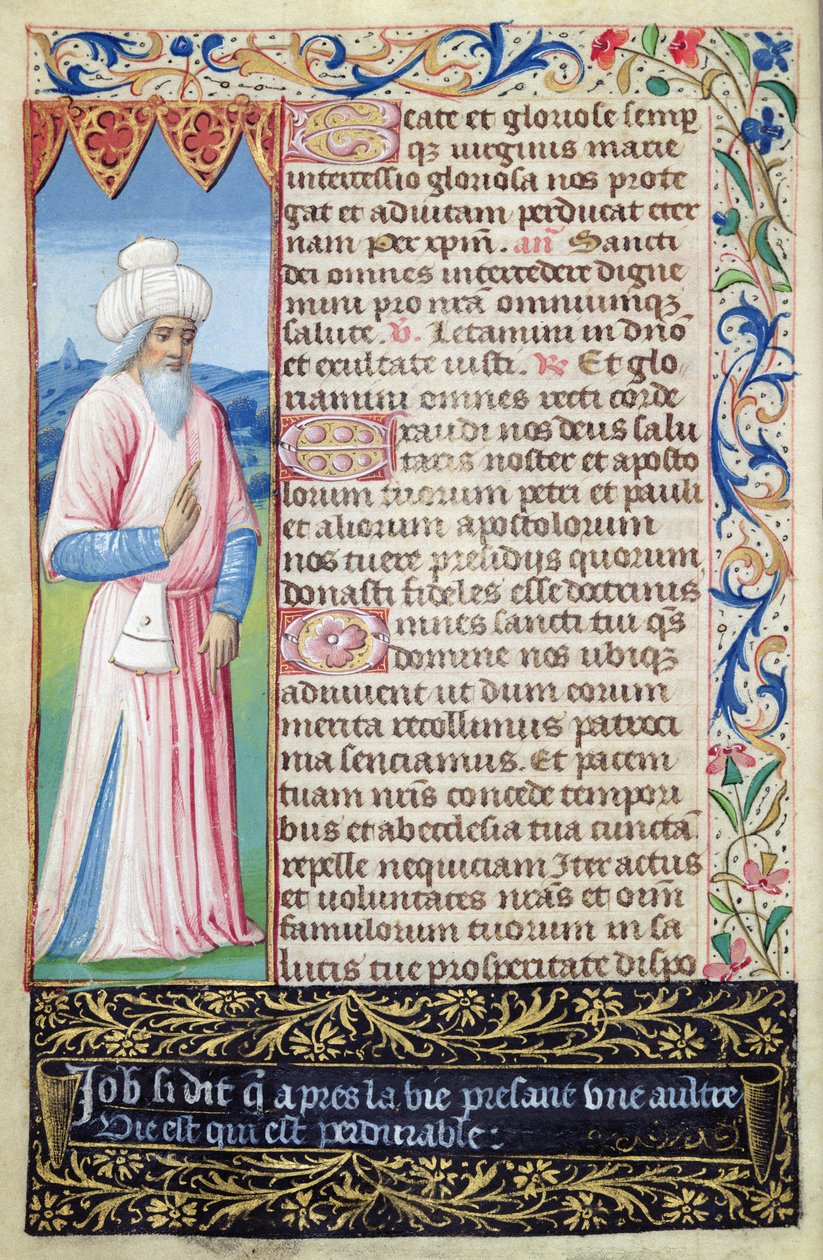 Beate et gloriose semp̱
qȝ uirginis marie
intercessio gloriosa nos prote
gat et aduitam perducat eter
nam Per xp̄m. añ Sancti
dei omnes intercedere digne
mini pro nr̄a omniumqȝ
salute. ℣. Letamini in dn̄o
et exultate iusti. ℟ Et glo
riamini omnes recti corde
Exaudi nos deus salu
taris noster et aposto
lorum tuorum petri et pauli
et aliorum apostolorum
nos tuere presidijs quorum
donasti fideles esse doctrinis
Omnes sancti tui qs̄
domine nos ubiqȝ
adiuuent ut dum eorum
merita recollimus patroci
nia senciamus. Et pacem
tuam nr̄is concede tempori
bus et ab ecclesia tua cunctā
repelle nequiciam Iter actus
et uoluntates nr̄as et om̄
famulorum tuorum in sa
lutis tue prosperitate dispo
Job si dit q̄ apres la vie presant vne aultre
Vie est qui est perdurable :